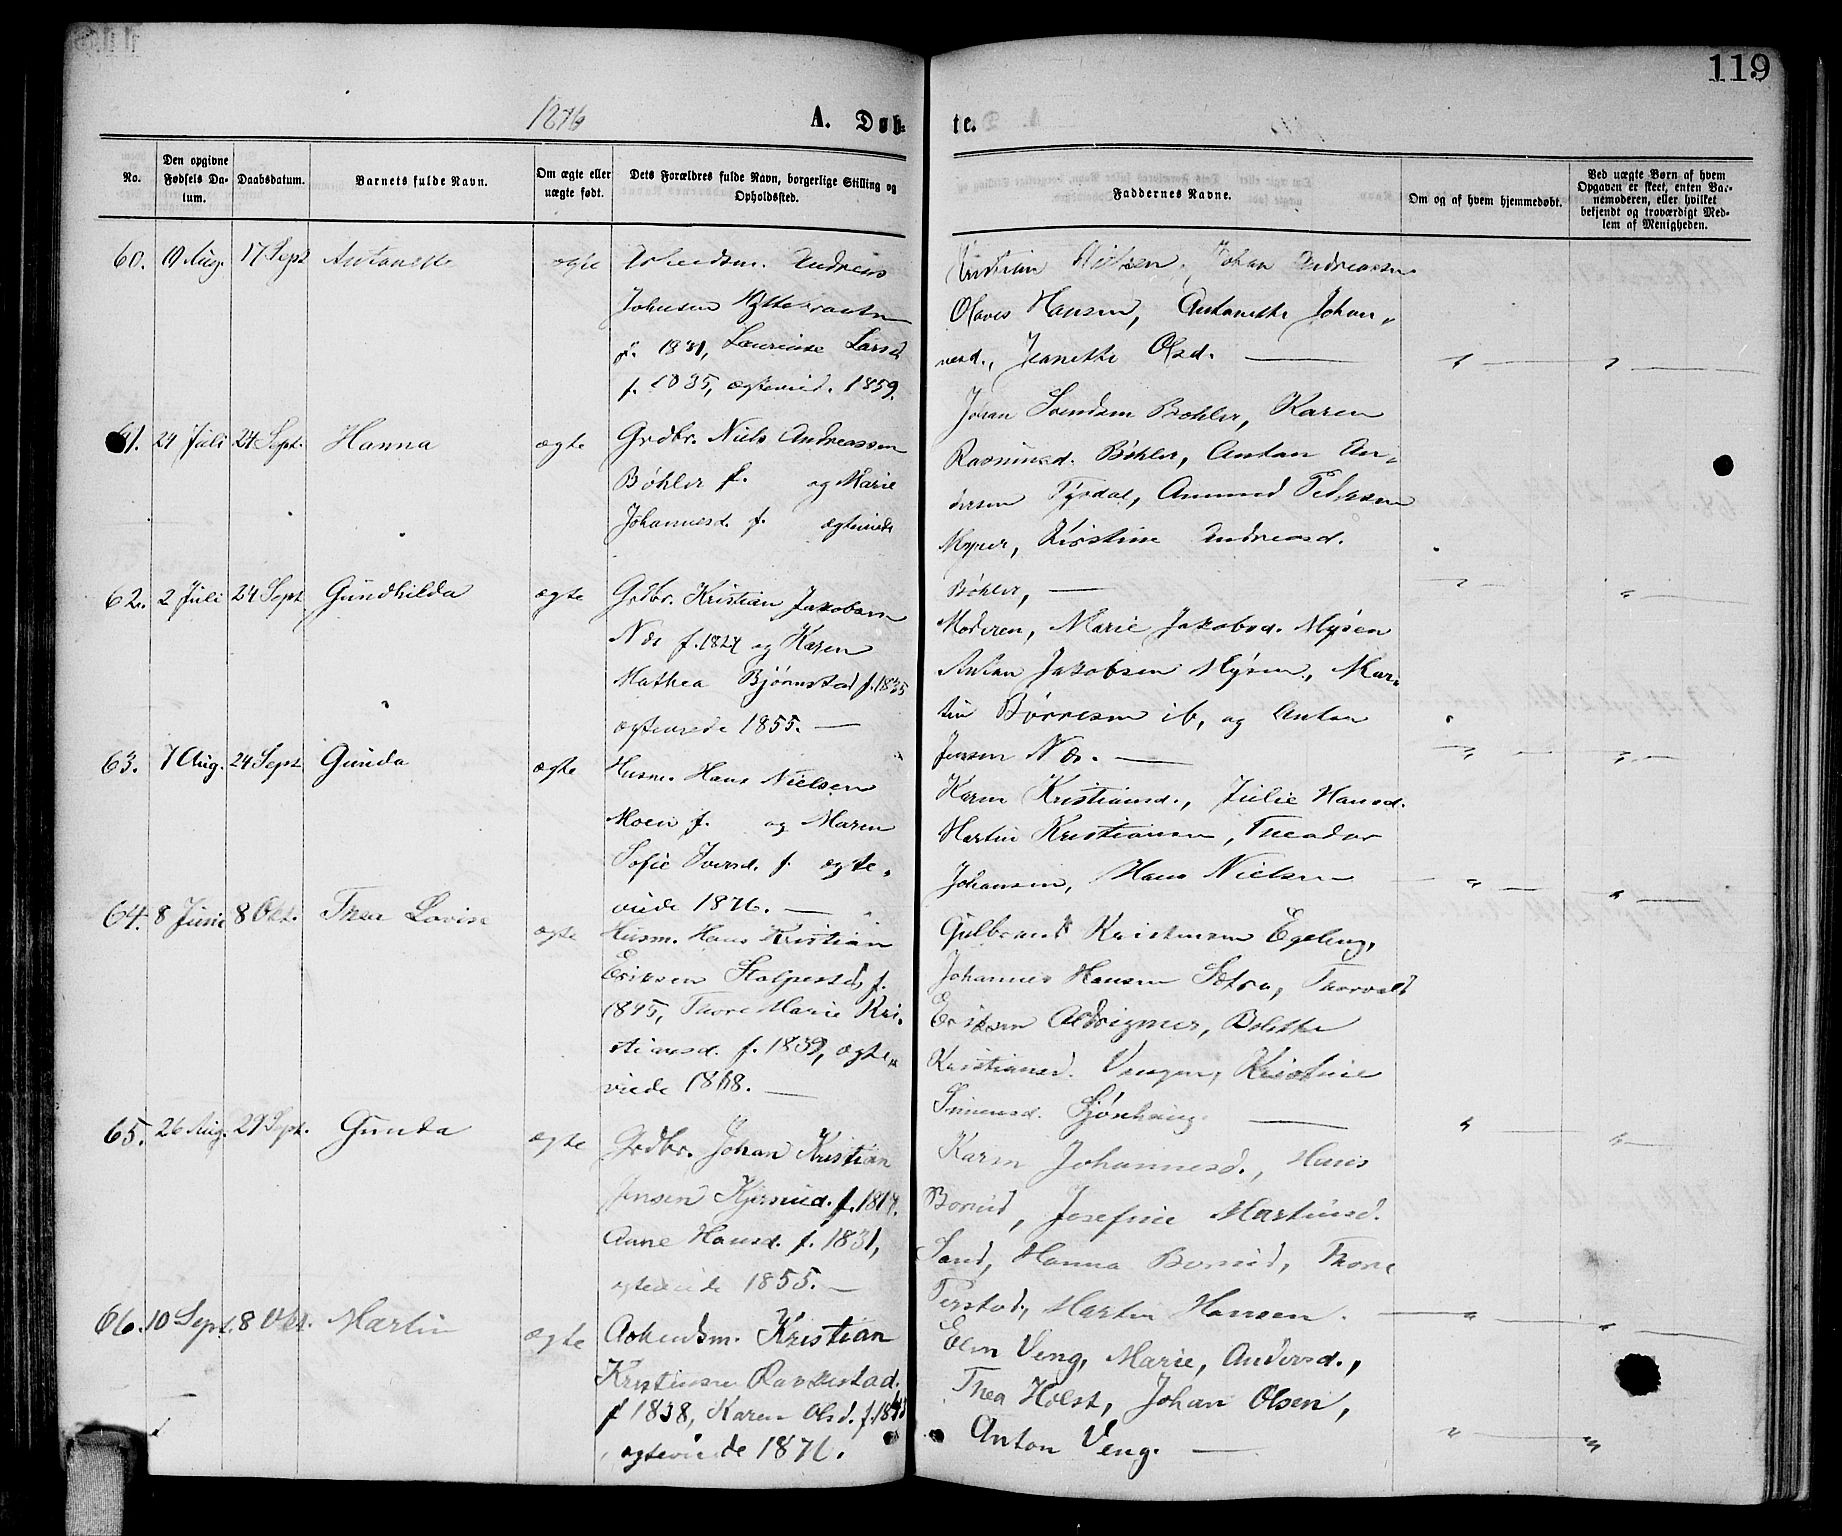 119
1876
A. Døb-
te.
No.
Den opgivne Fødsels Da-
tum.
Daabsdatum.
Barnets fulde Navn.
Om ægte eller
uægte født.
Dets Forældres fulde Navn, borgerlige Stilling og
Opholdssted.
Faddernes Navne.
Om og af hvem hjemmedøbt.
Ved uægte Børn af hvem
Opgaven er skeet, enten Bar-
nemoderen, eller hvilket
bekjendt og troværdigt Med-
lem af Menigheden.
60. 19 Aug. 17 Sept Antonette ægte
Andreas
Johnsen
f. 1831, Laurense Larsd
f. 1835, ægteviede. 1859.
Kristian Nielsen, Johan Andreassen
Olaves Hansen, Antonette Johan-
nesd., Jeanette Olsd. —
61. 24 Juli 24 Sept. Hanna ægte
Grdbr. Niels Andreassen
Bøhler f. og Marie
Johannesd. f. ægteviede
Johan Svendsen Bøhler, Karen
Rasmusd. Bøhler, Anton An-
dersen Tyrdal, Amund Pedersen
Myrer, Kristine Andreasd.
Bøhler, —
62. 2 Juli 24 Sept Gundhilda ægte
Grdbr. Kristian Jakobsen
Næs f. 1827 og Karen
Mathea Bjørnstad f. 1835
ægteviede 1855. —
Moderen, Marie Jakobsd. Mysen
Anton Jakobsen Mysen, Mar-
tin Børresen ib, og Anton
Jensen Næs. —
63. 7 Aug. 24 Sept Gunda ægte
Husm. Hans Nielsen
Moen f. og Maren
Sofie Iversd. f. ægte-
viede 1876. —
Karen Kristiansd., Julie Hansd.
Martin Kristiansen, Theodor
Johansen, Hans Nielsen
64. 8 Juni 8 Okt. Thea Lovise ægte
Husm. Hans Kristian
Eriksen Stolpestad, f.
1845, Thore Marie Kri-
stiansd. f. 1839, ægte-
viede 1868. —
Gulbrand Kristensen Egeling,
Johannes Hansen Sætra, Thorvald
Eriksen Aldrigmer, Bolette
Kristiansd. Vengen, Kristine
Simensd. —
65. 26 Aug. 29 Sept. Gunda ægte
Grdbr. Johan Kristian
Jensen f. 1817.
Anne Hansd. f. 1831,
ægteviede 1855. —
Karen Johannesd., Hans
Borud, Josefine Martinsd.
Sand, Hanna Borud, Thore
Perstad, Martin Hansen. —
66. 10 Sept. 8 Okt. Martin ægte
Arbeidsm. Kristian
Kristiansen Ravnestad.
f 1838, Karen Olsd. f.
ægteviede 1876.
Elen Veng, Marie, Andersd.,
Thea Holst, Johan Olsen,
Anton Veng. —